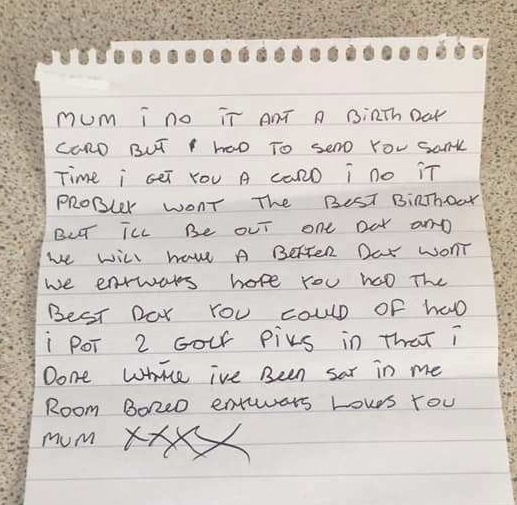 MUM i no iT ANT A BiRTh DaY
CARD BUT I had To send You Sank
Time i GeT You A CARD i no iT
PROBLEY WONT The BesT BiRThDaY
BuT iLL Be ouT one DaY AND
We will have A BeTTeR DaY WonT
We enyways hope You had The
BesT DaY You could OF had
i PoT 2 GoLF Pivs in ThaT i
Done While ive Been saT in me
Room BoRed enyways Loves You
MUM XXXX